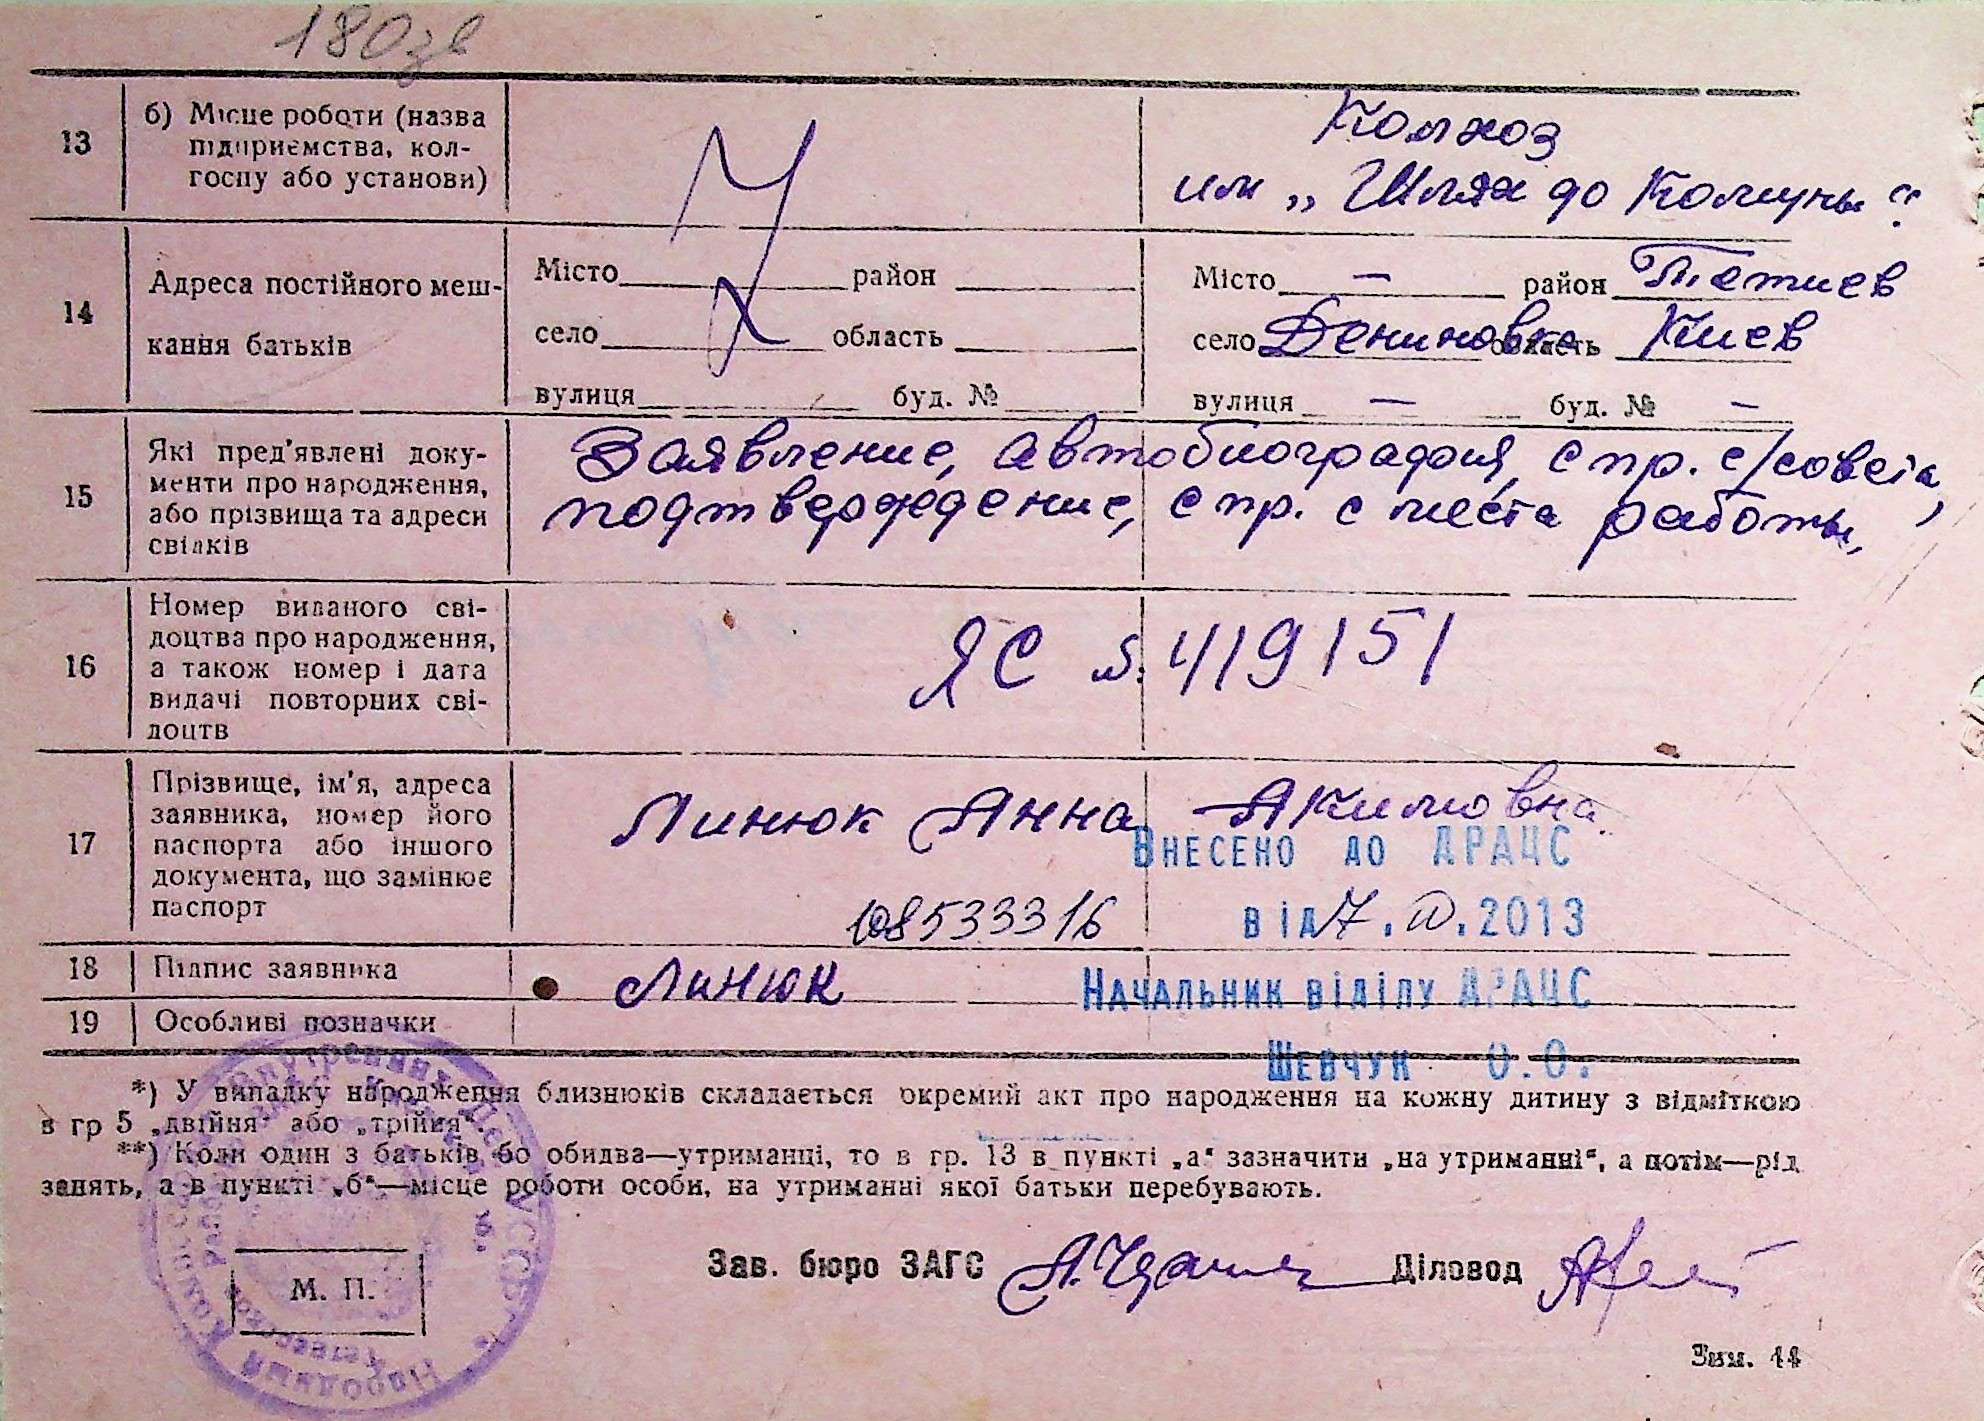 180зв
13
б) Місце роботи (назва
підприємства, кол-
госпу або установи)
Колхоз
им „Шлях до Комуны"
14
Адреса постійного меш-
кання батьків
Місто район
село область
вулиця буд. №
Місто — район Тетиев
село Дениновка область Киев
вулиця — буд. № —
15
Які пред'явлені доку-
менти про народження,
або прізвища та адреси
свідків
Заявление, автобиография, спр. с/совета,
подтверждение, спр. с места работы,
16
Номер виданого сві-
доцтва про народження,
а також номер і дата
видачі повторних сві-
доцтв
ЯС №419151
17
Прізвище, ім'я, адреса
заявника, номер його
паспорта або іншого
документа, що замінює
паспорт
Линюк Анна Акимовна
Внесено до ДРАЦС
від 7. IV. 2013
Начальник відділу ДРАЦС
Шевчук О.О.
18
Підпис заявника
Линюк
19
Особливі позначки
*) У випадку народження близнюків складається окремий акт про народження на кожну дитину з відміткою
в гр 5 „двійня" або „трійня".
**) Коли один з батьків бо обидва—утриманці, то в гр. 13 в пункті „а" зазначити „на утриманні", а потім—рід
занять, а в пункті „б"—місце роботи особи, на утриманні якої батьки перебувають.
М. П.
Зав. бюро ЗАГС
Діловод
Зам. 44